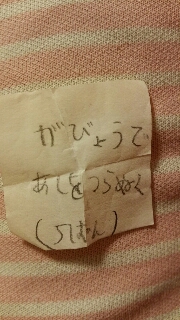 がびょうで
あしをつらぬく
(5ほん)